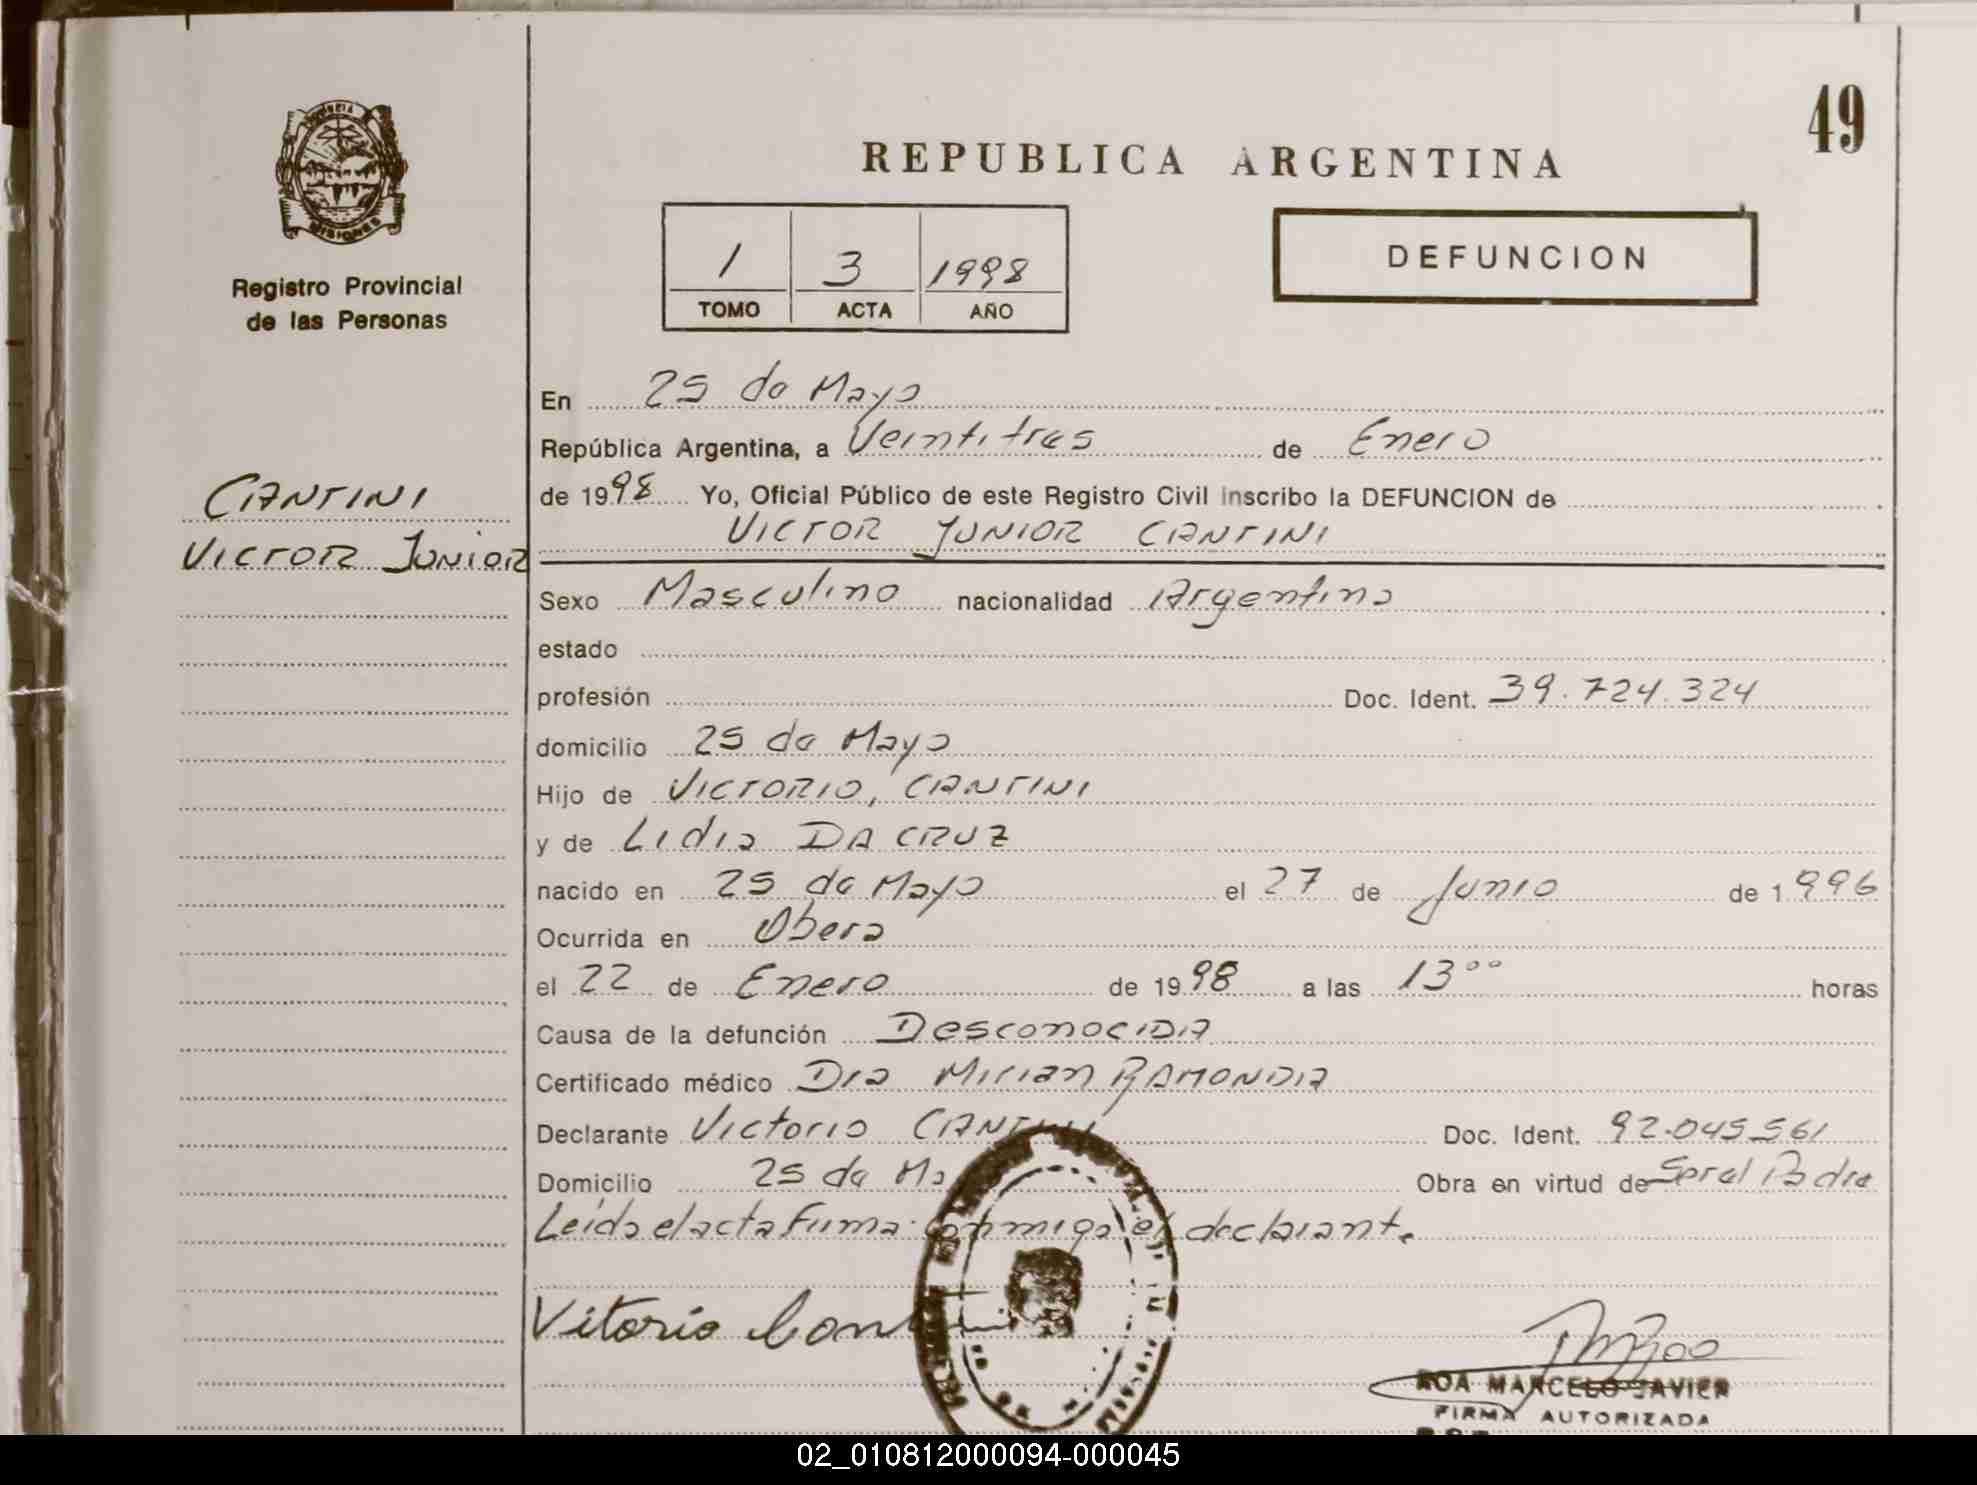 49
PROVINCIA
MISIONES
REPUBLICA ARGENTINA
Registro Provincial
de las Personas
1 3 1998
TOMO ACTA AÑO
DEFUNCION
En 25 de Mayo
República Argentina, a Veintitres de Enero
de 1998 Yo, Oficial Público de este Registro Civil inscribo la DEFUNCION de
VICTOR JUNIOR CANTINI
CANTINI
VICTOR JUNIOR
Sexo Masculino nacionalidad Argentina
estado
profesión Doc. Ident. 39.724.324
domicilio 25 de Mayo
Hijo de VICTORIO, CANTINI
y de Lidia DA CRUZ
nacido en 25 de Mayo el 27 de Junio de 1996
Ocurrida en Obera
el 22 de Enero de 1998 a las 13ºº horas
Causa de la defunción DESCONOCIDA
Certificado médico Dra Mirian RAMONDA
Declarante Victorio CANTINI Doc. Ident. 92.045.561
Domicilio 25 de Ma Obra en virtud de Padre
Leida el acta Firma conmigo el declarante
Vitorio
ROA MARCELO JAVIER
FIRMA AUTORIZADA
02_010812000094-000045